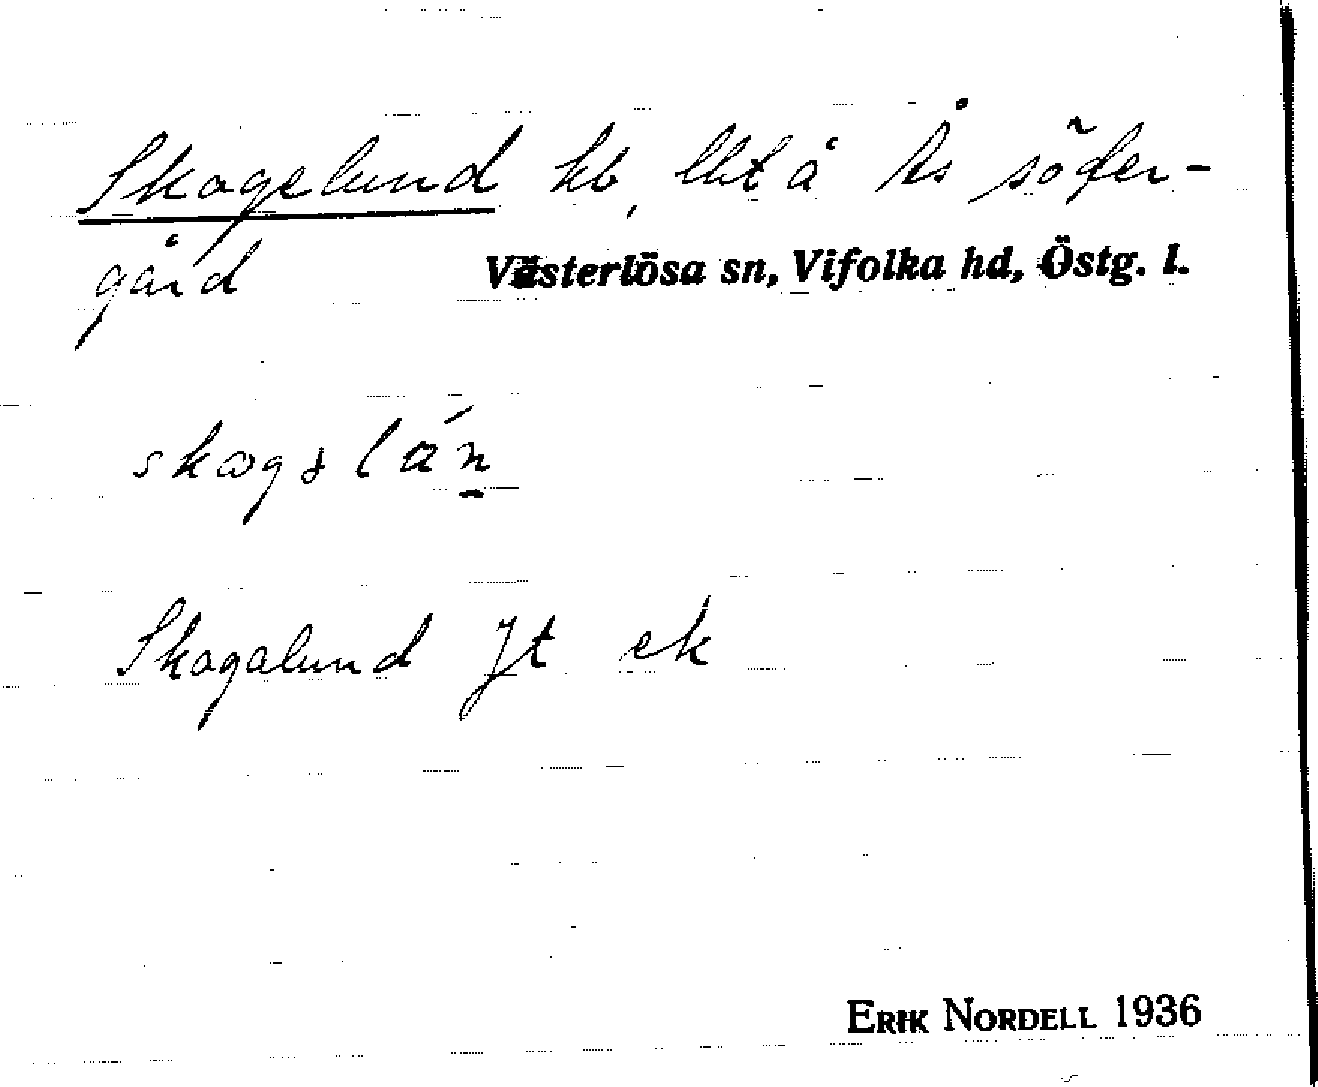 Skogslund hb, lht å Ås söder-
gård Västerlösa sn, Vifolka hd, Östg. l.
skogslán
Skogalund Jt ek
ERIK NORDELL 1936